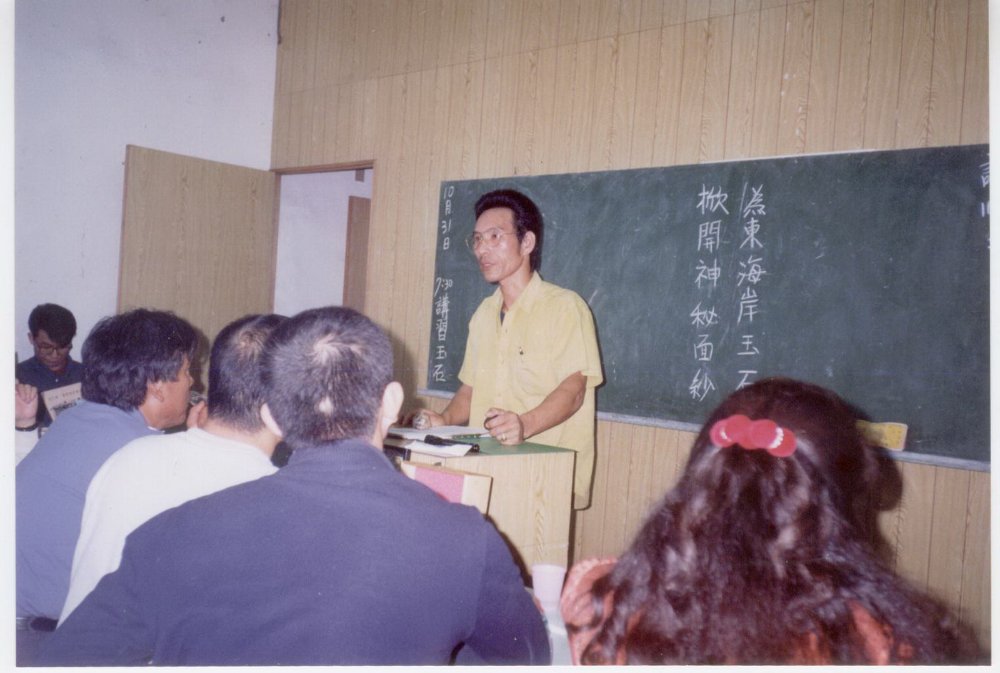 為東海岸玉石
掀開神秘面紗
10月31日 7:30講習玉石